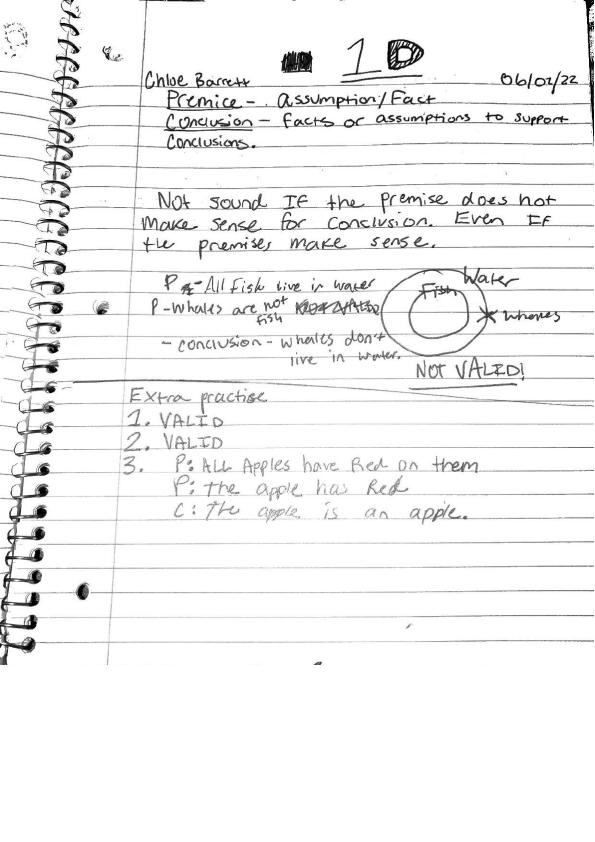 1D
Chloe Barrett 06/02/22
Premice - assumption/Fact
Conclusion - facts or assumptions to support
conclusions.
Not sound IF the premise does not
make sense for conclusion. Even IF
the premises make sense.
P - All fish live in water
P - Whales are not
fish
- conclusion - whales don't
live in water.
Water
Fish
Whales
NOT VALID!
Extra practise
1. VALID
2. VALID
3. P: All Apples have Red on them
P: The apple has Red
C: The apple is an apple.